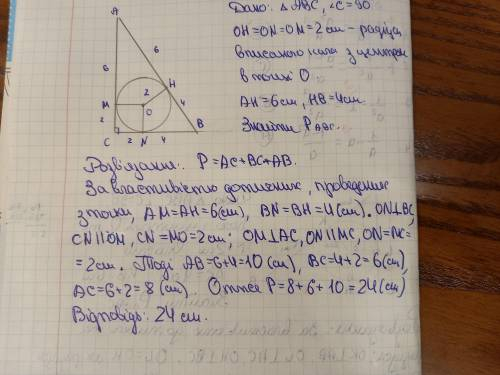 Дано: △ABC, ∠C=90°
OH=ON=OM=2 см – радіуси
вписаного кола з центром
в точці O
AH=6 см, HB=4 см.
Знайти P ABC.
A
6
6
M
2
H
O
4
2
C
2
N
4
B
Розв'язання: P=AC+BC+AB.
За властивістю дотичних, проведених
з точки, AM=AH=6(см), BN=BH=4(см). ON⊥BC,
CN||OM, CN=MO=2см; OM⊥AC, ON||MC, ON=MC=
=2см. Тоді AB=6+4=10(см), BC=4+2=6(см),
AC=6+2=8(см). Отже P=8+6+10=24(см)
Відповідь: 24 см.